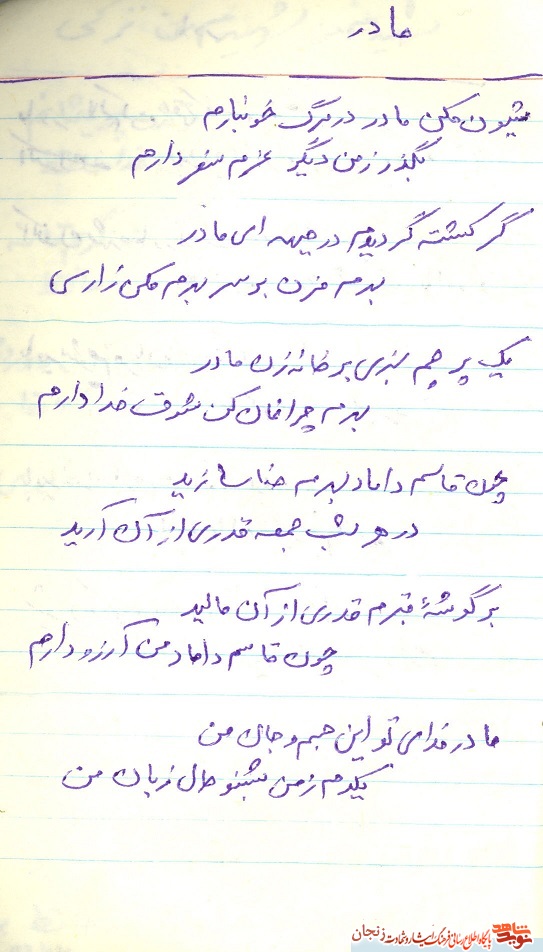 مادر
شیون مکن مادر در مرگ خونبارم
بگذر زمن دیگر عزم سفر دارم
گر کشته گردیدم در جبهه ای مادر
بهرم مزن بر سر بهرم مکن زاری
یک پرچم سبزی بر خانه زن مادر
بهرم چراغان کن شوق خدا دارم
چون قاسم داماد بهرم حنا سازید
در هر شب جمعه قدری از آن آرید
بر گوشهٔ قبرم قدری از آن مالید
چون قاسم داماد من آرزو دارم
مادر فدای تو این جسم و جان من
یکدم زمن بشنو حال زبان من
نوید شاهد پایگاه اطلاع رسانی فرهنگ ایثار و شهادت زنجان